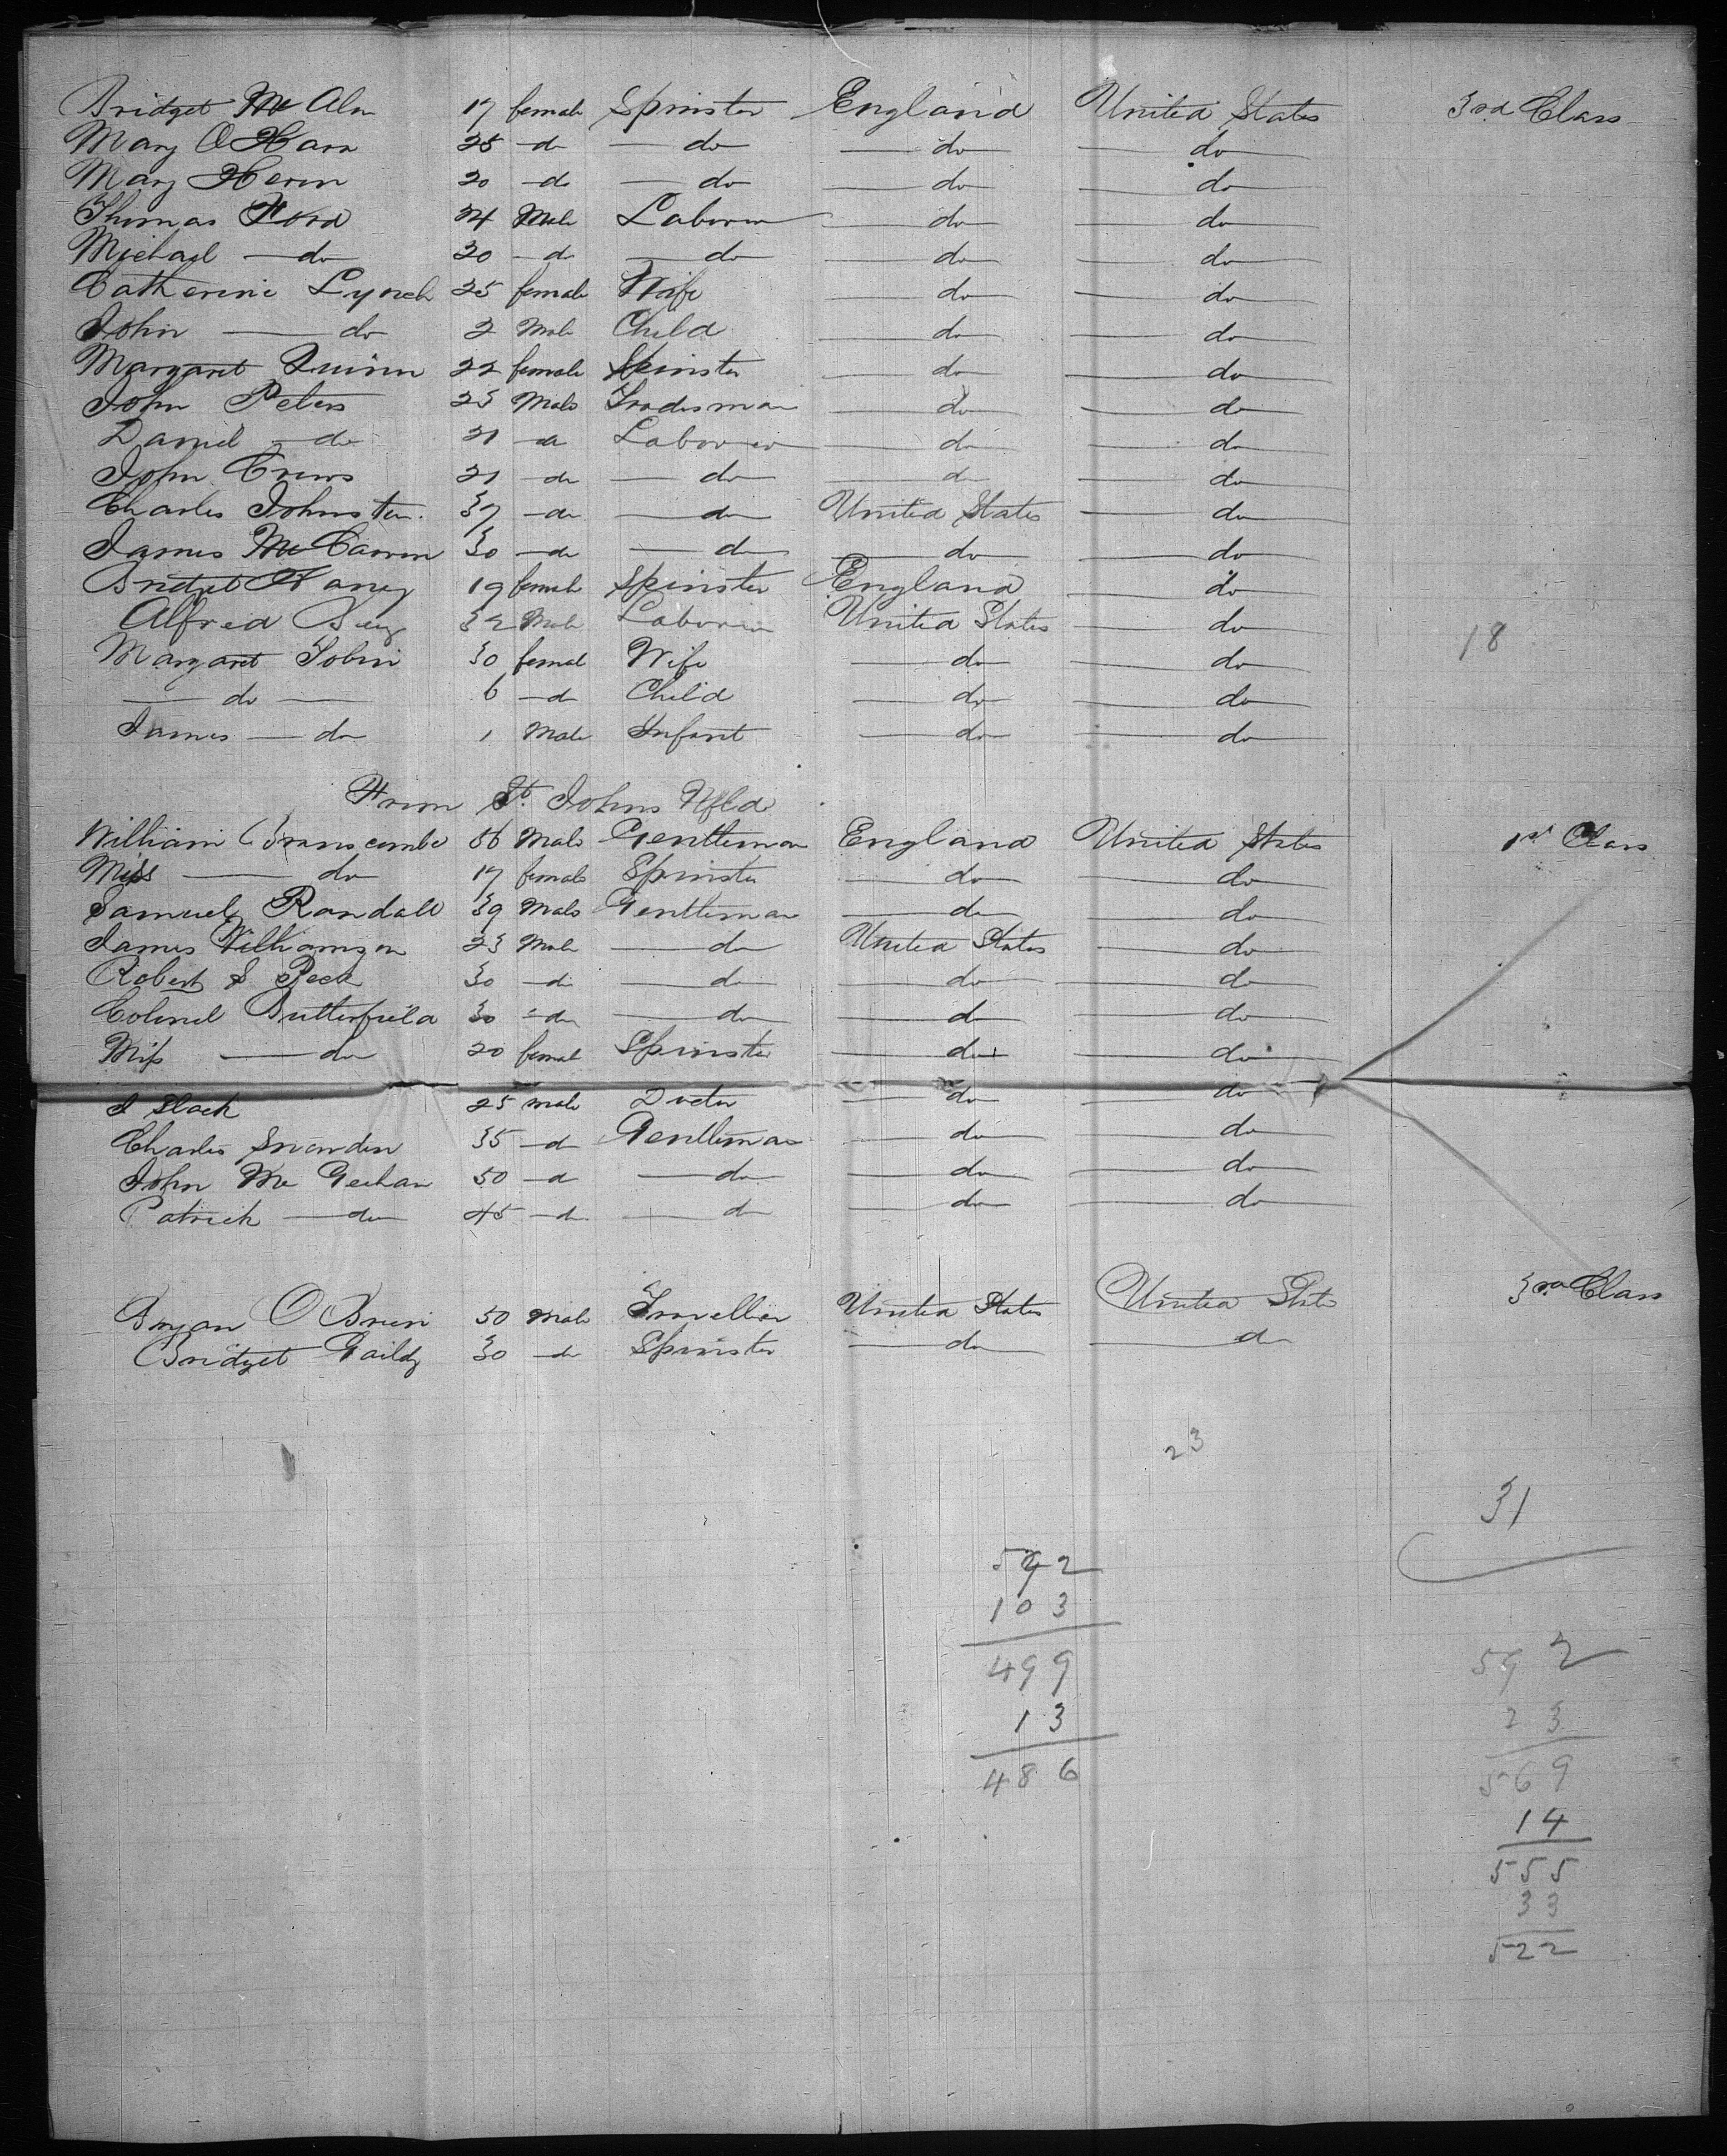 Bridget Mc Aln 17 female Spinster England United States 3rd Class
Mary O Hara 25 do do do do
Mary Heron 20 do do do do
Thomas Ford 24 Male Laborer do do
Michael do 20 do do do do
Catherine Lynch 25 female Wife do do
John do 2 Male Child do do
Margaret Quinn 22 female Spinster do do
John Peters 25 Male Tradesman do do
Daniel do 21 do Laborer do do
John Crews 21 do do do do
Charles Johnston 37 do do United States do
James Mc Carron 30 do do do do
Bridget Haney 19 female Spinster England do
Alfred 32 Male Laborer United States do 18
Margaret Tobin 30 female Wife do do
do 6 do Child do do
James do 1 Male Infant do do
From St. Johns Nfld
William Branscombe 56 Male Gentleman England United States 1st Class
Miss do 17 female Spinster do do
Samuel Randall 39 Male Gentleman do do
James Williamson 23 Male do United States do
Robert S Peck 30 do do do do
Colonel Butterfield 30 do do do do
Miss do 20 female Spinster do do
J Slack 25 male Doctor do do
Charles Snowden 35 do Gentleman do do
John Mc Geehan 50 do do do do
Patrick do 45 do do do do
Bryan O Brien 50 Male Traveller United States United States 3rd Class
Bridget 30 do Spinster do do
23
31
592
103
499
13
486
592
23
569
14
555
33
522